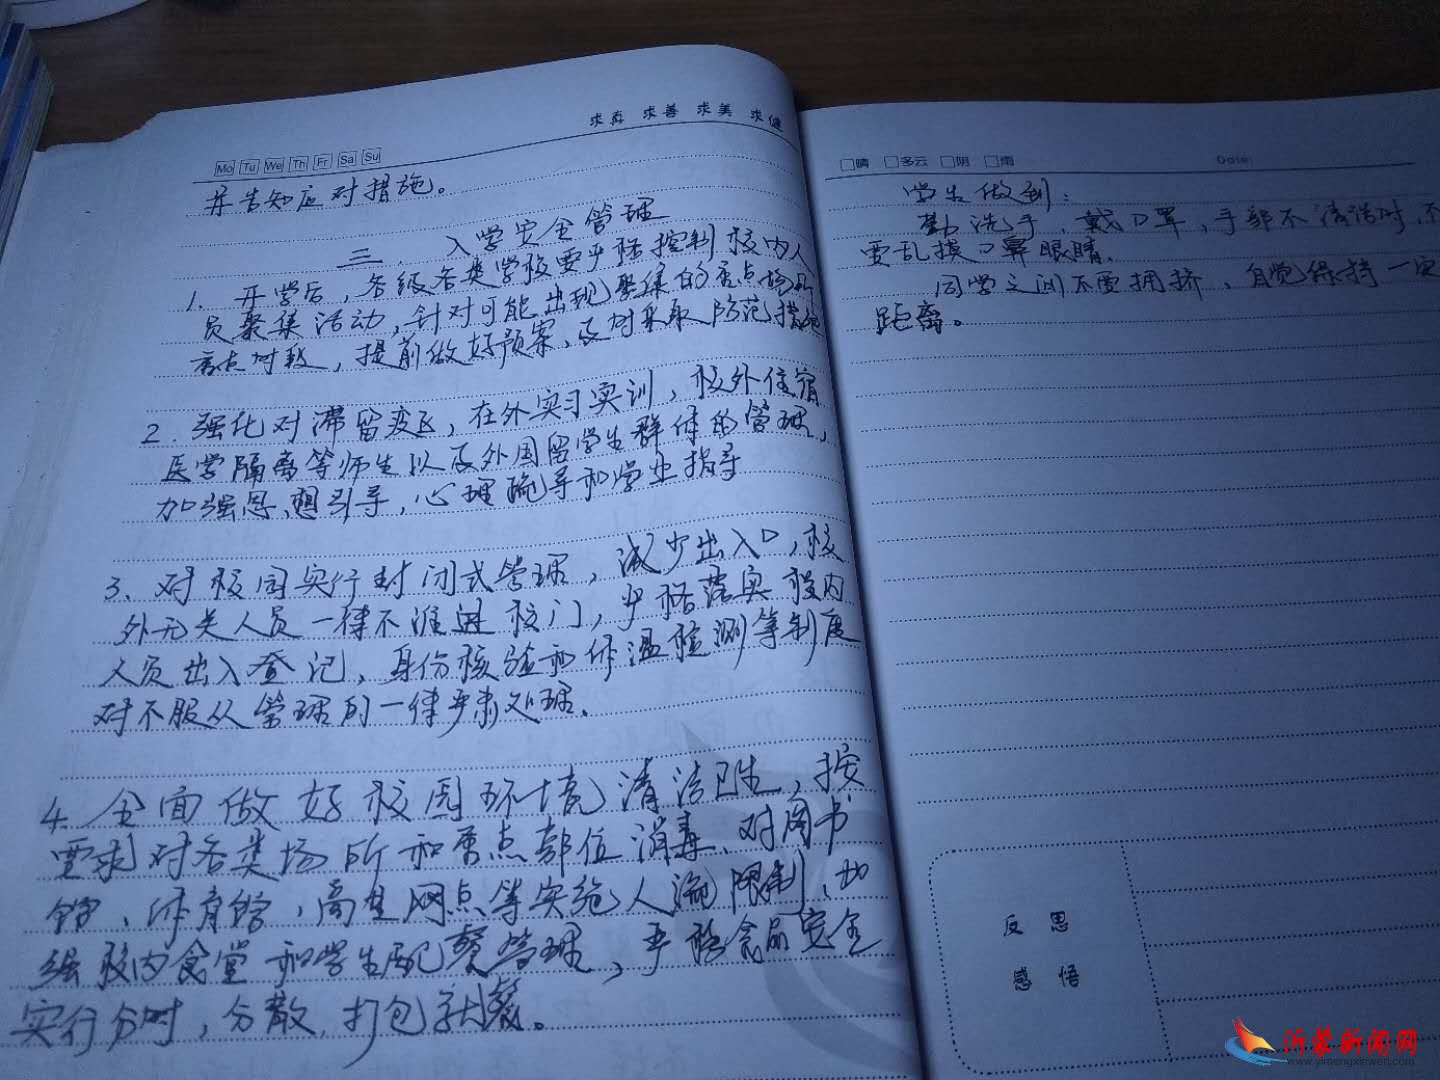 求真 求善 求美 求健
Mo Tu We Th Fr Sa Su
并告知应对措施。
三、入学安全管理
1. 开学后，各级各类学校要严格控制校内人
员聚集活动，针对可能出现聚集的重点场所
重点时段，提前做好预案，及时采取防范措施
2. 强化对滞留疫区，在外实习实训，校外住宿
医学隔离等师生以及外国留学生群体的管理，
加强思想引导，心理疏导和学业指导
3、对校园实行封闭式管理，减少出入口，校
外无关人员一律不准进校门，严格落实校内
人员出入登记，身份核验和体温检测等制度
对不服从管理的一律严肃处理。
4. 全面做好校园环境清洁卫生，按
要求对各类场所和重点部位消毒、对图书
馆、体育馆，商业网点等实施人流限制，加
强校内食堂和学生配餐管理，严格食品安全
实行分时，分散，打包就餐。
□晴 □多云 □阴 □雨 Date:
学生做到：
勤洗手、戴口罩，手部不清洁时，不
要乱摸口鼻眼睛、
同学之间不要拥挤、自觉保持一定
距离。
反思
感悟
沂蒙新闻网
www.yimengxinwen.com